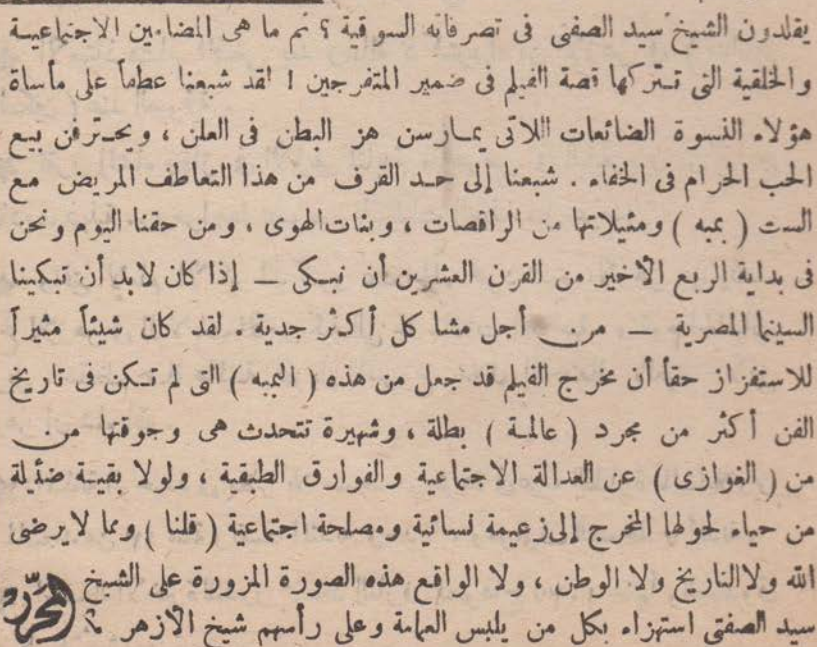 يقلدون الشيخ سيد الصفتى فى تصرفاته السوقية ؟ ثم ما هى المضامين الاجتماعية
والخلقية التى تتركها قصة الفيلم فى ضمير المتفرجين ! لقد شبعنا عطفاً على مأساة
هؤلاء النسوة الضائعات اللاتى يمارسن هز البطن فى العلن ، ويحترفن بيع
الحب الحرام فى الخفاء . شبعنا إلى حد القرف من هذا التعاطف المريض مع
الست ( بمبه ) ومثيلاتها من الراقصات ، وبنات الهوى ، ومن حقنا اليوم ونحن
فى بداية الربع الأخير من القرن العشرين أن نبكى — إذا كان لابد أن تبكينا
السينما المصرية — من أجل مشاكل أكثر جدية . لقد كان شيئاً مثيراً
للاستفزاز حقاً أن مخرج الفيلم قد جعل من هذه ( البمبه ) التى لم تكن فى تاريخ
الفن أكثر من مجرد ( عالمة ) بطلة ، وشهيرة تتحدث هى وجوقتها من
من ( الغوازى ) عن العدالة الاجتماعية والفوارق الطبقية ، ولولا بقية ضئيلة
من حياء لحولها المخرج إلى زعيمة نسائية ومصلحة اجتماعية ( قلنا ) ومما لا يرضى
الله ولا التاريخ ولا الوطن ، ولا الواقع هذه الصورة المزورة على الشيخ
سيد الصفتى استهزاء بكل من يلبس العمامة وعلى رأسهم شيخ الأزهر ؟ المحرر